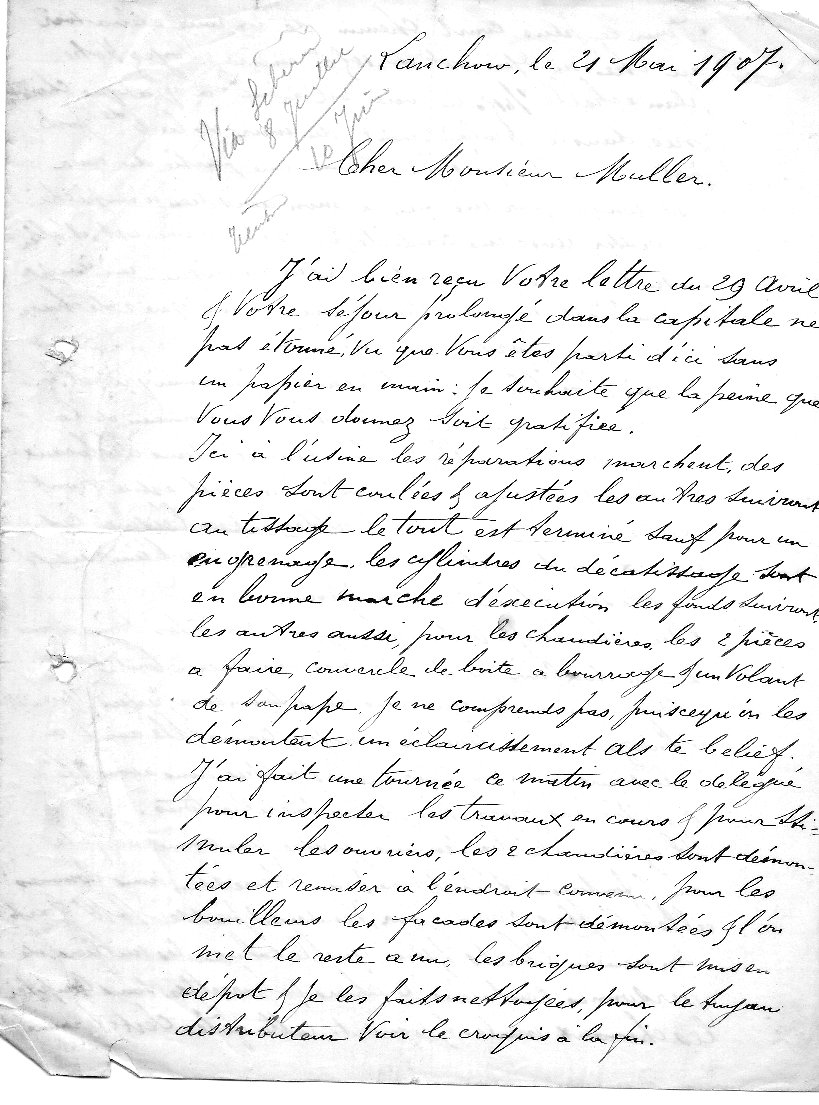 Lanchow, le 21 Mai 1907.
Via Siberie
8 Juillet
10 Juin
Cher Monsieur Muller.
J'ai bien reçu Votre lettre du 29 Avril
& Votre séjour prolongé dans la capitale ne
pas étonné, Vu que Vous êtes parti d'ici sans
un papier en main: Je souhaite que la peine que
Vous Vous donnez soit gratifiée.
Ici à l'usine les réparations marchent, des
pièces sont coulées & ajustées les autres suivront
au tissage le tout est terminé sauf pour un
engrenage, les cylindres du décatissage sont
en bonne marche d'éxécution les fonds suivront,
les autres aussi, pour les chaudières, les 2 pièces
a faire, couvercle de boite a bourrage & un Volant
de soupape, je ne comprends pas, puisequ'on les
démontent un éclaircissement als te belief.
J'ai fait une tournée ce matin avec le délégué
pour inspecter les travaux en cours & pour sti-
muler les ouvriers, les 2 chaudières sont démon-
tées et remiser à l'endroit convenu, pour les
bouilleurs les facades sont démontées & l'on
met le reste a nu, les briques sont mis en
dépot & je les faits nettoyées, pour le tuyau
distributeur Voir le croquis à la fin.